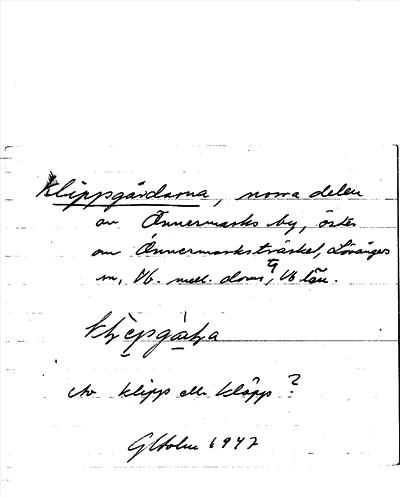 Klippgårdarna, norra delen
av Önnermarks by, öster
om Önnermarksträsket, Lövångers
sn, Vb. mell. doms, Vb län.
Av klipp elle kläpp?
G Holm 1947